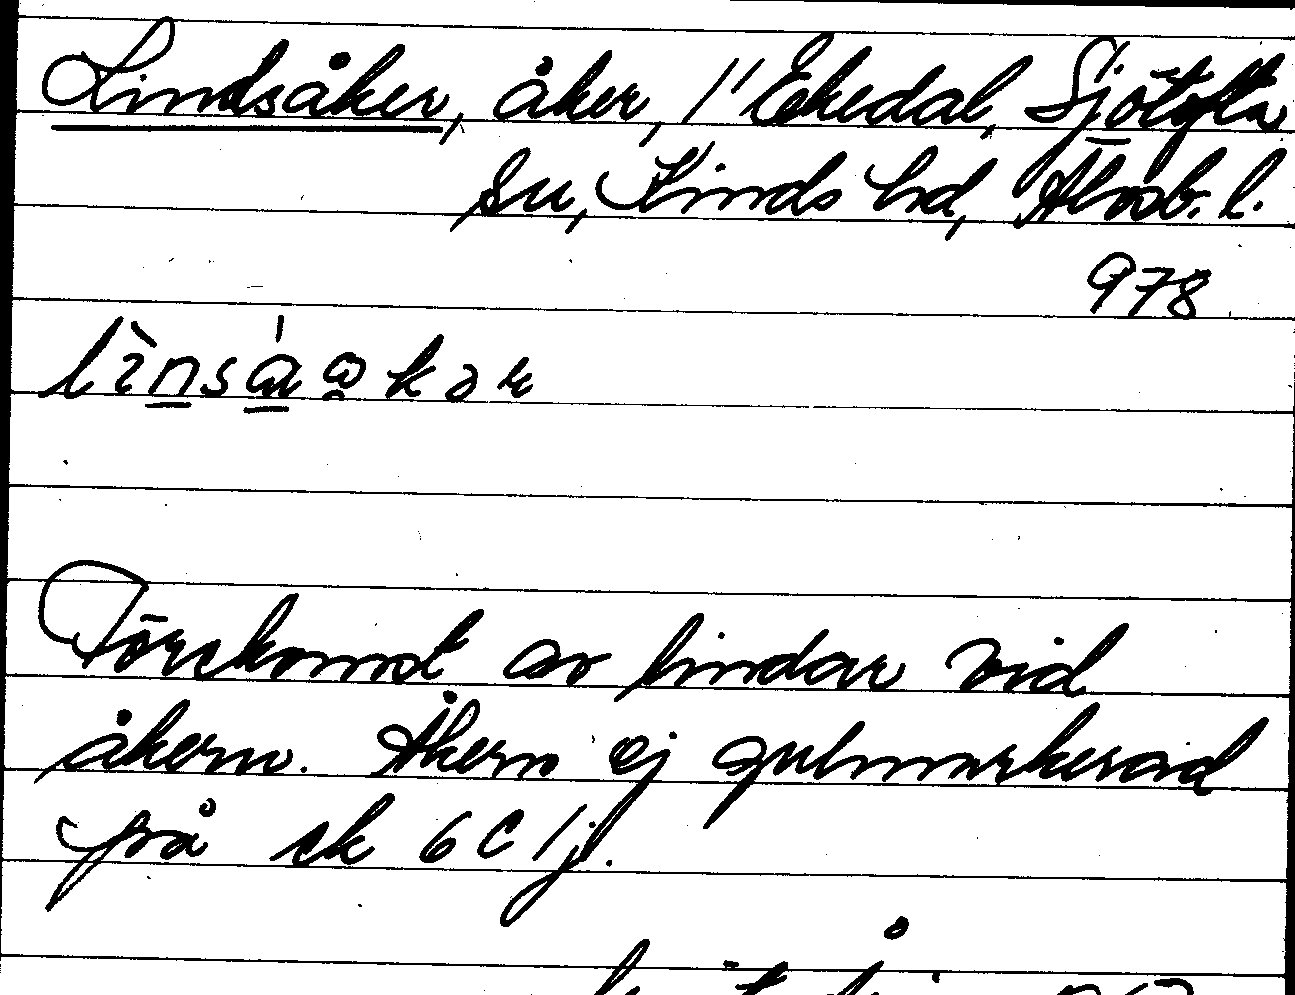 Lindsåker, åker, 1" Ekedal, Sjötofta
sn, Kinds hd, Älvsb. l.
978
Förekomst av lindar vid
åkern. Åkern ej gulmarkerad
på ek 6C 1j.